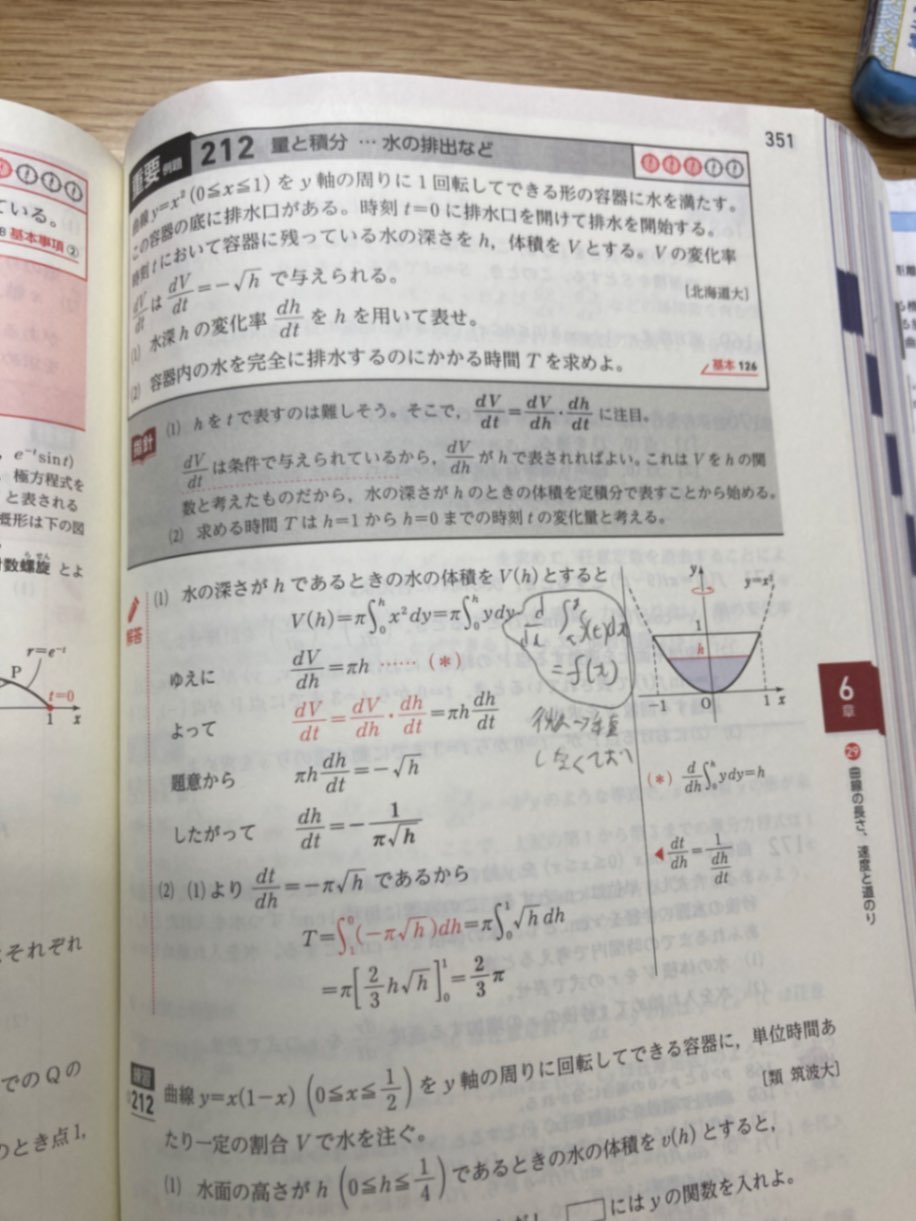 351
重要 例題 212 量と積分 … 水の排出など
曲線 y=x² (0≦x≦1) を y 軸の周りに1回転してできる形の容器に水を満たす。
この容器の底に排水口がある。時刻 t=0 に排水口を開けて排水を開始する。
時刻 t において容器に残っている水の深さを h，体積を V とする。V の変化率
dV/dt は dV/dt=-√h で与えられる。
[北海道大]
(1) 水深 h の変化率 dh/dt を h を用いて表せ。
(2) 容器内の水を完全に排水するのにかかる時間 T を求めよ。
基本 126
指針 (1) h を t で表すのは難しそう。そこで，dV/dt=dV/dh・dh/dt に注目。
dV/dt は条件で与えられているから，dV/dh が h で表されればよい。これは V を h の関
数と考えたものだから，水の深さが h のときの体積を定積分で表すことから始める。
(2) 求める時間 T は h=1 から h=0 までの時刻 t の変化量と考える。
解答
(1) 水の深さが h であるときの水の体積を V(h) とすると
V(h)=π∫₀ʰx²dy=π∫₀ʰydy
ゆえに dV/dh=πh ……(*)
よって dV/dt=dV/dh・dh/dt=πh dh/dt
題意から πh dh/dt=-√h
したがって dh/dt=-1/(π√h)
(2) (1)より dt/dh=-π√h であるから
T=∫₁⁰(-π√h)dh=π∫₀¹√h dh
=π[2/3 h√h]₀¹=2/3 π
=f(x)
y
y=x²
1
h
-1 0 1 x
(*) d/dh∫₀ʰydy=h
◀dt/dh=1/(dh/dt)
6
章
29 曲線の長さ，速度と道のり
練習
212 曲線 y=x(1-x) (0≦x≦1/2) を y 軸の周りに回転してできる容器に，単位時間あ
たり一定の割合 V で水を注ぐ。
[類 筑波大]
(1) 水面の高さが h (0≦h≦1/4) であるときの水の体積を v(h) とすると，
には y の関数を入れよ。
ている。
基本事項 ②
e⁻ᵗsint)
極方程式を
と表される
概形は下の図
数螺旋 とよ
うせん
r=e⁻ᵗ
P
t=0
1 x
それぞれ
での Q の
のとき点1,